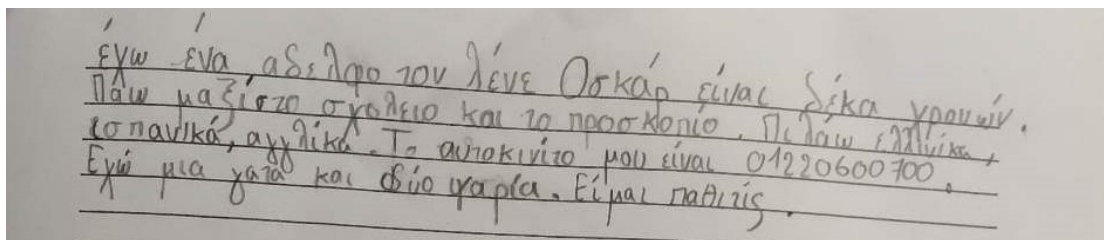 έγω ένα αδελφο τον λένε Οσκάρ είναι δέκα χρονών.
Πάω μαζί στο σχολειο και το προσκοπίο. Πιλάω ελλινικα,
ισπανικά, αγγλικά. Το αυτοκινίτο μου είναι 01220600700.
Εχώ μια γατα και δύο ψαρία. Είμαι παθιτίς.